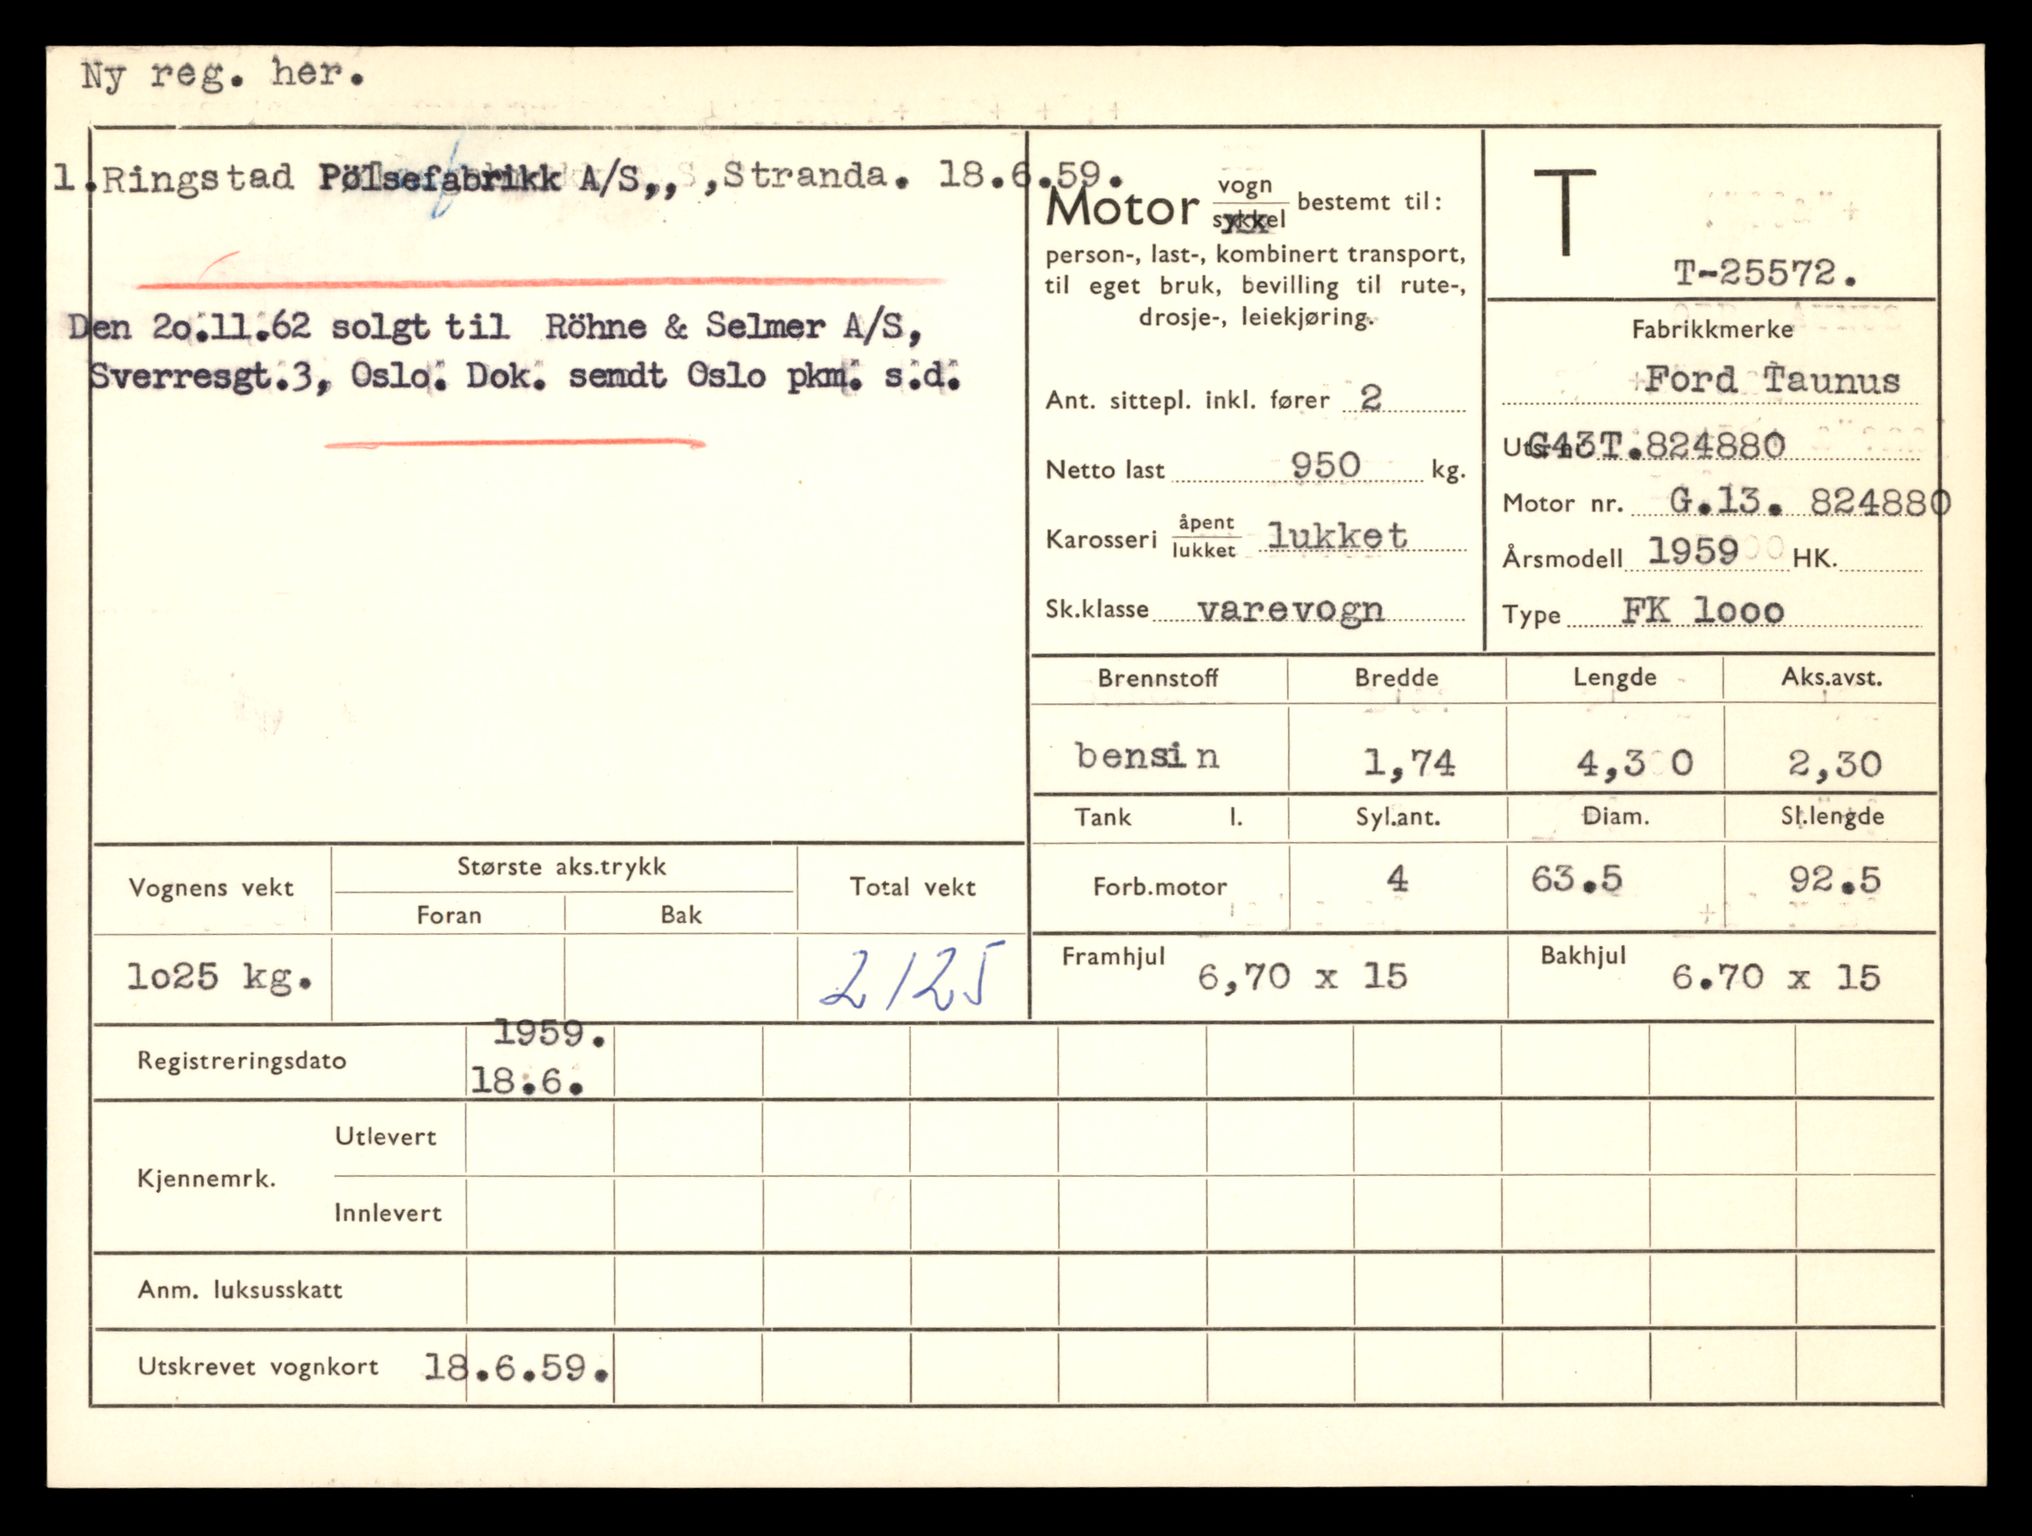 Ny reg. her.
1.Ringstad Pölsefabrikk A/S,, ,Stranda. 18.6.59.
Den 2o.11.62 solgt til Röhne & Selmer A/S,
Sverresgt.3, Oslo. Dok. sendt Oslo pkm. s.d.
Motor vogn
sykkel bestemt til:
person-, last-, kombinert transport,
til eget bruk, bevilling til rute-,
drosje-, leiekjøring.
Ant. sittepl. inkl. fører 2
Netto last 950 kg.
Karosseri åpent
lukket lukket
Sk.klasse varevogn
T
T-25572.
Fabrikkmerke
Ford Taunus
G43T.824880
Motor nr. G.13. 824880
Årsmodell 1959 HK.
Type FK looo
Brennstoff Bredde Lengde Aks.avst.
bensin 1,74 4,3 0 2,30
Tank l. Syl.ant. Diam. Sl.lengde
Forb.motor 4 63.5 92.5
Framhjul 6,70 x 15 Bakhjul 6.70 x 15
Vognens vekt Største aks.trykk Total vekt
Foran Bak
lo25 kg. 2125
Registreringsdato 1959.
18.6.
Kjennemrk. Utlevert
Innlevert
Anm. luksusskatt
Utskrevet vognkort 18.6.59.